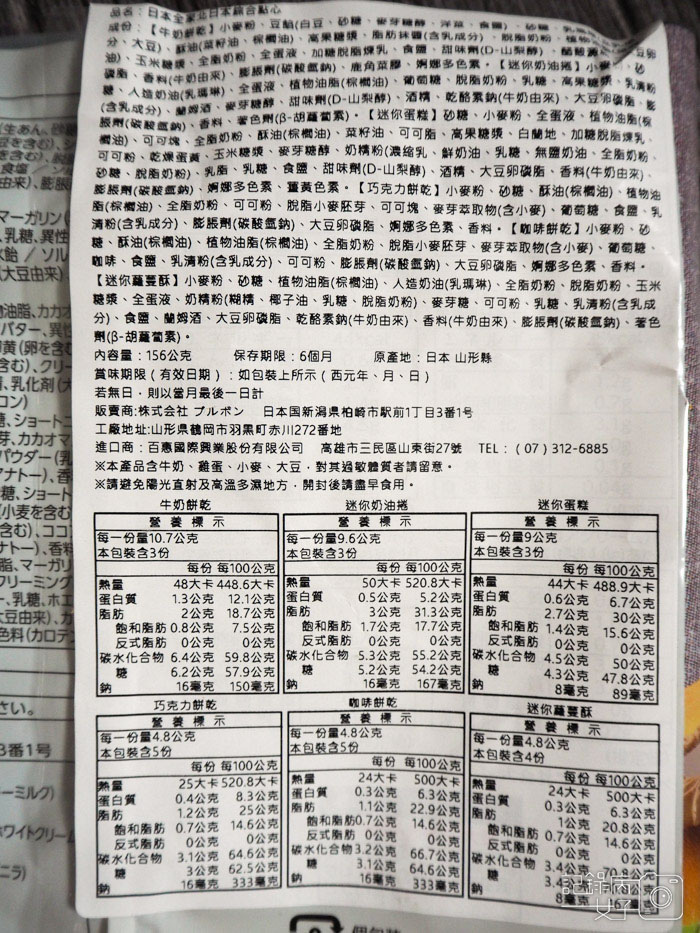 品名：日本全家北日本綜合點心
成份：【牛奶餅乾】小麥粉、豆餡(白豆、砂糖、麥芽糖醇、洋菜、食鹽)、砂糖、乳
油)、玉米糖漿、全脂奶粉、全蛋液、加糖脫脂煉乳、食鹽、甜味劑(D-山梨醇)、醋酸澱
、大豆)、酥油(菜籽油、棕櫚油)、高果糖漿、脂肪抹醬(含乳成分)、脫脂奶粉、
、膨脹劑(碳酸氫鈉)、鹿角菜膠、婀娜多色素。【迷你奶油捲】小麥
磷脂、香料(牛奶由來)、
糖、人造奶油(乳瑪琳)、全蛋液、植物油脂(棕櫚油)、葡萄糖、脫脂奶粉、乳糖、高果糖漿、乳清粉
(含乳成分)、蘭姆酒、麥芽糖醇、甜味劑(D-山梨醇)、酒精、乾酪素鈉(牛奶由來)、大豆卵磷脂、膨
脹劑(碳酸氫鈉)、香料、著色劑(β-胡蘿蔔素)。【迷你蛋糕】砂糖、小麥粉、全蛋液、植物油脂(棕
櫚油)、可可塊、全脂奶粉、酥油(棕櫚油)、菜籽油、可可脂、高果糖漿、白蘭地、加糖脫脂煉乳、
可可粉、乾燥蛋黃、玉米糖漿、麥芽糖醇、奶精粉(濃縮乳、鮮奶油、乳糖、無鹽奶油、全脂奶粉、
砂糖、脫脂奶粉)、乳脂、乳糖、食鹽、甜味劑(D-山梨醇)、酒精、大豆卵磷脂、香料(牛奶由來)、
膨脹劑(碳酸氫鈉)、婀娜多色素、薑黃色素。【巧克力餅乾】小麥粉、砂糖、酥油(棕櫚油)、植物油
脂(棕櫚油)、全脂奶粉、可可粉、脫脂小麥胚芽、可可塊、麥芽萃取物(含小麥)、葡萄糖、食鹽、乳
清粉(含乳成分)、膨脹劑(碳酸氫鈉)、大豆卵磷脂、婀娜多色素、香料。【咖啡餅乾】小麥粉、砂
糖、酥油(棕櫚油)、植物油脂(棕櫚油)、全脂奶粉、脫脂小麥胚芽、麥芽萃取物(含小麥)、葡萄糖、
咖啡、食鹽、乳清粉(含乳成分)、可可粉、膨脹劑(碳酸氫鈉)、大豆卵磷脂、婀娜多色素、香料。
【迷你蘿蔓酥】小麥粉、砂糖、植物油脂(棕櫚油)、人造奶油(乳瑪琳)、全脂奶粉、脫脂奶粉、玉米
糖漿、全蛋液、奶精粉(糊精、椰子油、乳糖、脫脂奶粉)、麥芽糖、可可粉、乳糖、乳清粉(含乳成
分)、食鹽、蘭姆酒、大豆卵磷脂、乾酪素鈉(牛奶由來)、香料(牛奶由來)、膨脹劑(碳酸氫鈉)、著色
劑(β-胡蘿蔔素)。
內容量：156公克 保存期限：6個月 原產地：日本 山形縣
賞味期限（有效日期）：如包裝上所示（西元年、月、日）
若無日，則以當月最後一日計
販賣商:株式会社 ブルボン 日本国新潟県柏崎市駅前1丁目3番1号
工廠地址:山形県鶴岡市羽黒町赤川272番地
進口商：百惠國際興業股份有限公司 高雄市三民區山東街27號 TEL：（07）312-6885
※本產品含牛奶、雞蛋、小麥、大豆，對其過敏體質者請留意。
※請避免陽光直射及高溫多濕地方，開封後請盡早食用。
牛奶餅乾
營養標示
每一份量10.7公克
本包裝含3份
每份 每100公克
熱量 48大卡 448.6大卡
蛋白質 1.3公克 12.1公克
脂肪 2公克 18.7公克
飽和脂肪 0.8公克 7.5公克
反式脂肪 0公克 0公克
碳水化合物 6.4公克 59.8公克
糖 6.2公克 57.9公克
鈉 16毫克 150毫克
迷你奶油捲
營養標示
每一份量9.6公克
本包裝含3份
每份 每100公克
熱量 50大卡 520.8大卡
蛋白質 0.5公克 5.2公克
脂肪 3公克 31.3公克
飽和脂肪 1.7公克 17.7公克
反式脂肪 0公克 0公克
碳水化合物 5.3公克 55.2公克
糖 5.2公克 54.2公克
鈉 16毫克 167毫克
迷你蛋糕
營養標示
每一份量9公克
本包裝含3份
每份 每100公克
熱量 44大卡 488.9大卡
蛋白質 0.6公克 6.7公克
脂肪 2.7公克 30公克
飽和脂肪 1.4公克 15.6公克
反式脂肪 0公克 0公克
碳水化合物 4.5公克 50公克
糖 4.3公克 47.8公克
鈉 8毫克 89毫克
巧克力餅乾
營養標示
每一份量4.8公克
本包裝含5份
每份 每100公克
熱量 25大卡 520.8大卡
蛋白質 0.4公克 8.3公克
脂肪 1.2公克 25公克
飽和脂肪 0.7公克 14.6公克
反式脂肪 0公克 0公克
碳水化合物 3.1公克 64.6公克
糖 3公克 62.5公克
鈉 16毫克 333毫克
咖啡餅乾
營養標示
每一份量4.8公克
本包裝含5份
每份 每100公克
熱量 24大卡 500大卡
蛋白質 0.3公克 6.3公克
脂肪 1.1公克 22.9公克
飽和脂肪0.7公克 14.6公克
反式脂肪 0公克 0公克
碳水化合物 3.2公克 66.7公克
糖 3.1公克 64.6公克
鈉 16毫克 333毫克
迷你蘿蔓酥
營養標示
每一份量4.8公克
本包裝含4份
每份 每100公克
熱量 24大卡 500大卡
蛋白質 0.3公克 6.3公克
脂肪 1公克 20.8公克
飽和脂肪 0.7公克 14.6公克
反式脂肪 0公克 0公克
碳水化合物 3.4公克
糖 3.4公克
鈉 8毫克
個包装